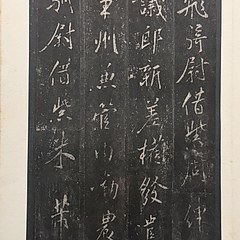 飛騎尉借紫
議郎新差權發遣
軍州兼管内勸農
尉借紫朱